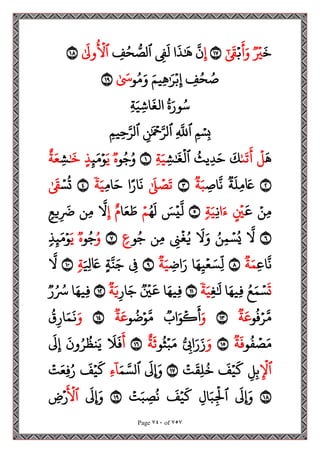 خَيْرٌ وَأَبْقَىٰٓ ١٧ إِنَّ هَٰذَا لَفِي ٱلصُّحُفِ ٱلْأُولَىٰ ١٨
صُحُفِ إِبْرَٰهِيمَ وَمُوسَىٰ ١٩
سُورَةُ الغَاشِيَةِ
بِسْمِ ٱللَّهِ ٱلرَّحْمَٰنِ ٱلرَّحِيمِ
هَلْ أَتَىٰكَ حَدِيثُ ٱلْغَٰشِيَةِ ١ وُجُوهٌ يَوْمَئِذٍ خَٰشِعَةٌ
٢ عَامِلَةٌ نَّاصِبَةٌ ٣ تَصْلَىٰ نَارًا حَامِيَةً ٤ تُسْقَىٰ
مِنْ عَيْنٍ ءَانِيَةٍ ٥ لَّيْسَ لَهُمْ طَعَامٌ إِلَّا مِن ضَرِيعٍ
٦ لَّا يُسْمِنُ وَلَا يُغْنِي مِن جُوعٍ ٧ وُجُوهٌ يَوْمَئِذٍ
نَّاعِمَةٌ ٨ لِّسَعْيِهَا رَاضِيَةٌ ٩ فِي جَنَّةٍ عَالِيَةٍ ١٠ لَّا
تَسْمَعُ فِيهَا لَٰغِيَةً ١١ فِيهَا عَيْنٌ جَارِيَةٌ ١٢ فِيهَا سُرُرٌ
مَّرْفُوعَةٌ ١٣ وَأَكْوَابٌ مَّوْضُوعَةٌ ١٤ وَنَمَارِقُ
مَصْفُوفَةٌ ١٥ وَزَرَابِيُّ مَبْثُوثَةٌ ١٦ أَفَلَا يَنظُرُونَ إِلَى
ٱلْإِبِلِ كَيْفَ خُلِقَتْ ١٧ وَإِلَى ٱلسَّمَآءِ كَيْفَ رُفِعَتْ
١٨ وَإِلَى ٱلْجِبَالِ كَيْفَ نُصِبَتْ ١٩ وَإِلَى ٱلْأَرْضِ
Page ٧٤٠ of ٧٥٧